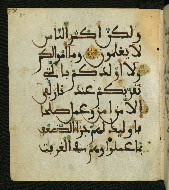 ولكن أكثر الناس
لا يعلمون وما أموالكم
ولا أولدكم بالتي
تقربكم عندنا زلفى
إلا من ءامن وعمل صلحا
فأولئك لهم جزاء الضعف
بما عملوا وهم في الغرفت